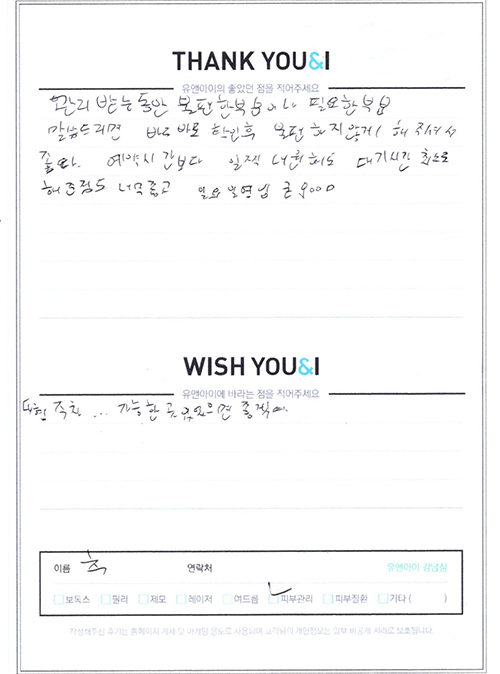 THANK YOU&I
유앤아이의 좋았던 점을 적어주세요
관리 받는동안 불편한부분이나 필요한부분
말씀드리면 바로바로 확인후 불편하지않게 해주셔서
좋다. 예약시간보다 일찍 내원해도 대기시간 최소로
해준점도 너무좋고 일요일영업 굿
WISH YOU&I
유앤아이에 바라는 점을 적어주세요
주차 ... 가능한 곳 있으면 좋겠어
이름
연락처
유앤아이 강남점
보톡스 필러 제모 레이저 여드름 피부관리 피부질환 기타 ( )
작성해주신 후기는 홈페이지 게재 및 마케팅 용도로 사용되며 고객님의 개인정보는 일부 비공개 처리로 보호됩니다.